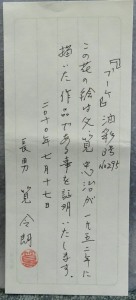 『ブーケ』油彩 no275
この花の絵は父 筧 忠治が一九五二年に
描いた作品である事を証明いたします。
二〇一〇年七月十七日
長男 筧